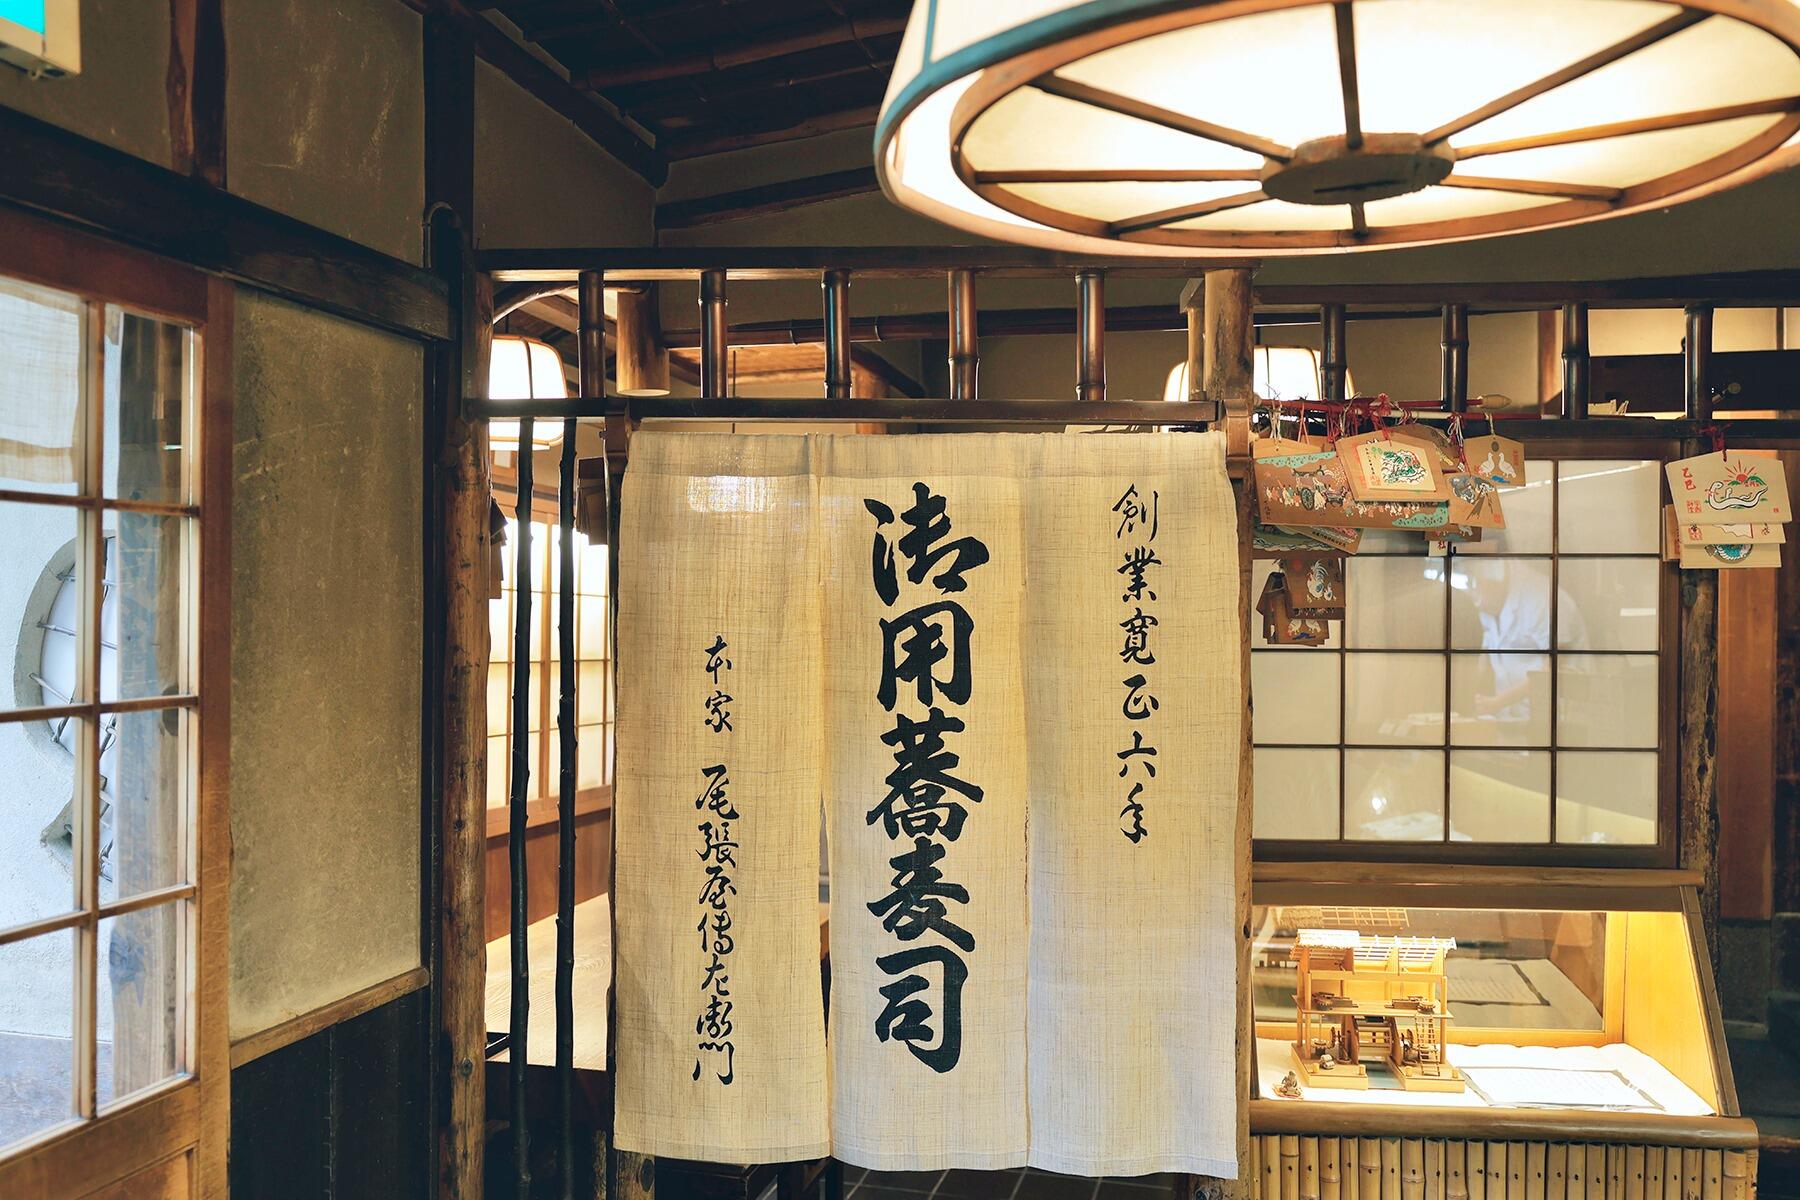 創業寛正六年
御用蕎麦司
本家 尾張屋傳左衞門
乙巳